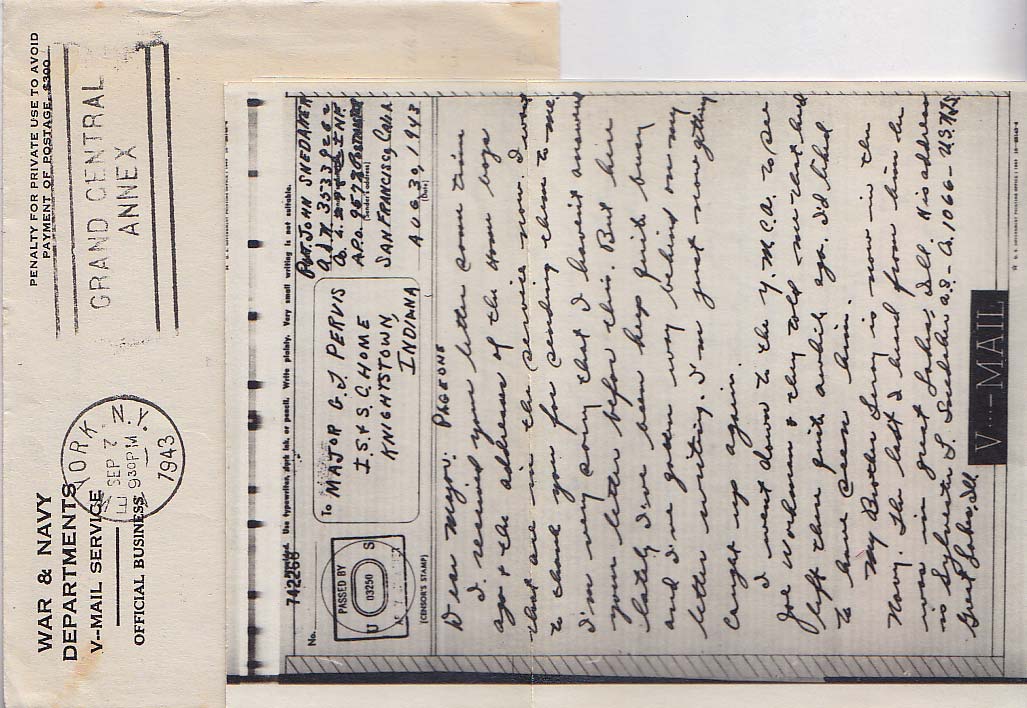 WAR & NAVY
DEPARTMENTS
V--MAIL SERVICE
OFFICIAL BUSINESS
PENALTY FOR PRIVATE USE TO AVOID
PAYMENT OF POSTAGE, $300
GRAND CENTRAL
ANNEX
YORK, N.Y.
SEP 7
930PM
1943
No.
742268
Use typewriter, dark ink, or pencil. Write plainly. Very small writing is not suitable.
PASSED BY
U S
03250
(CENSOR'S STAMP)
To MAJOR G. J. PERVIS
I. S. & S. C. HOME
KNIGHTSTOWN,
INDIANA
PVT. JOHN SNEDAKER
Co. INF
A.P.O. 9578 POSTMASTER
(Sender's address)
SAN FRANCISCO, CALIF
AUG 30, 1943
(Date)
PAGE ONE
Dear Major:
I received your letter some time
ago & the addresses of the Home boys
that are in the service now. I want
to thank you for sending them to me
I'm very sorry that I havn't answered
your letter before this. But here
lately I've been kept quite busy
and I've gotten way behind on my
letter writing. I'm just now getting
caught up again.
I went down to the Y.M.C.A. to see
Joe Workman & they told me that he'd
left there quite awhile ago. I'd liked
to have seen him.
My Brother Leroy is now in the
Navy. The last I heard from him he
was in Great Lakes, Ill. His address
is Sylvester L. Snedaker A.S.-Co. 1066- U.S.N.T.S
Great Lakes, Ill
V···--MAIL